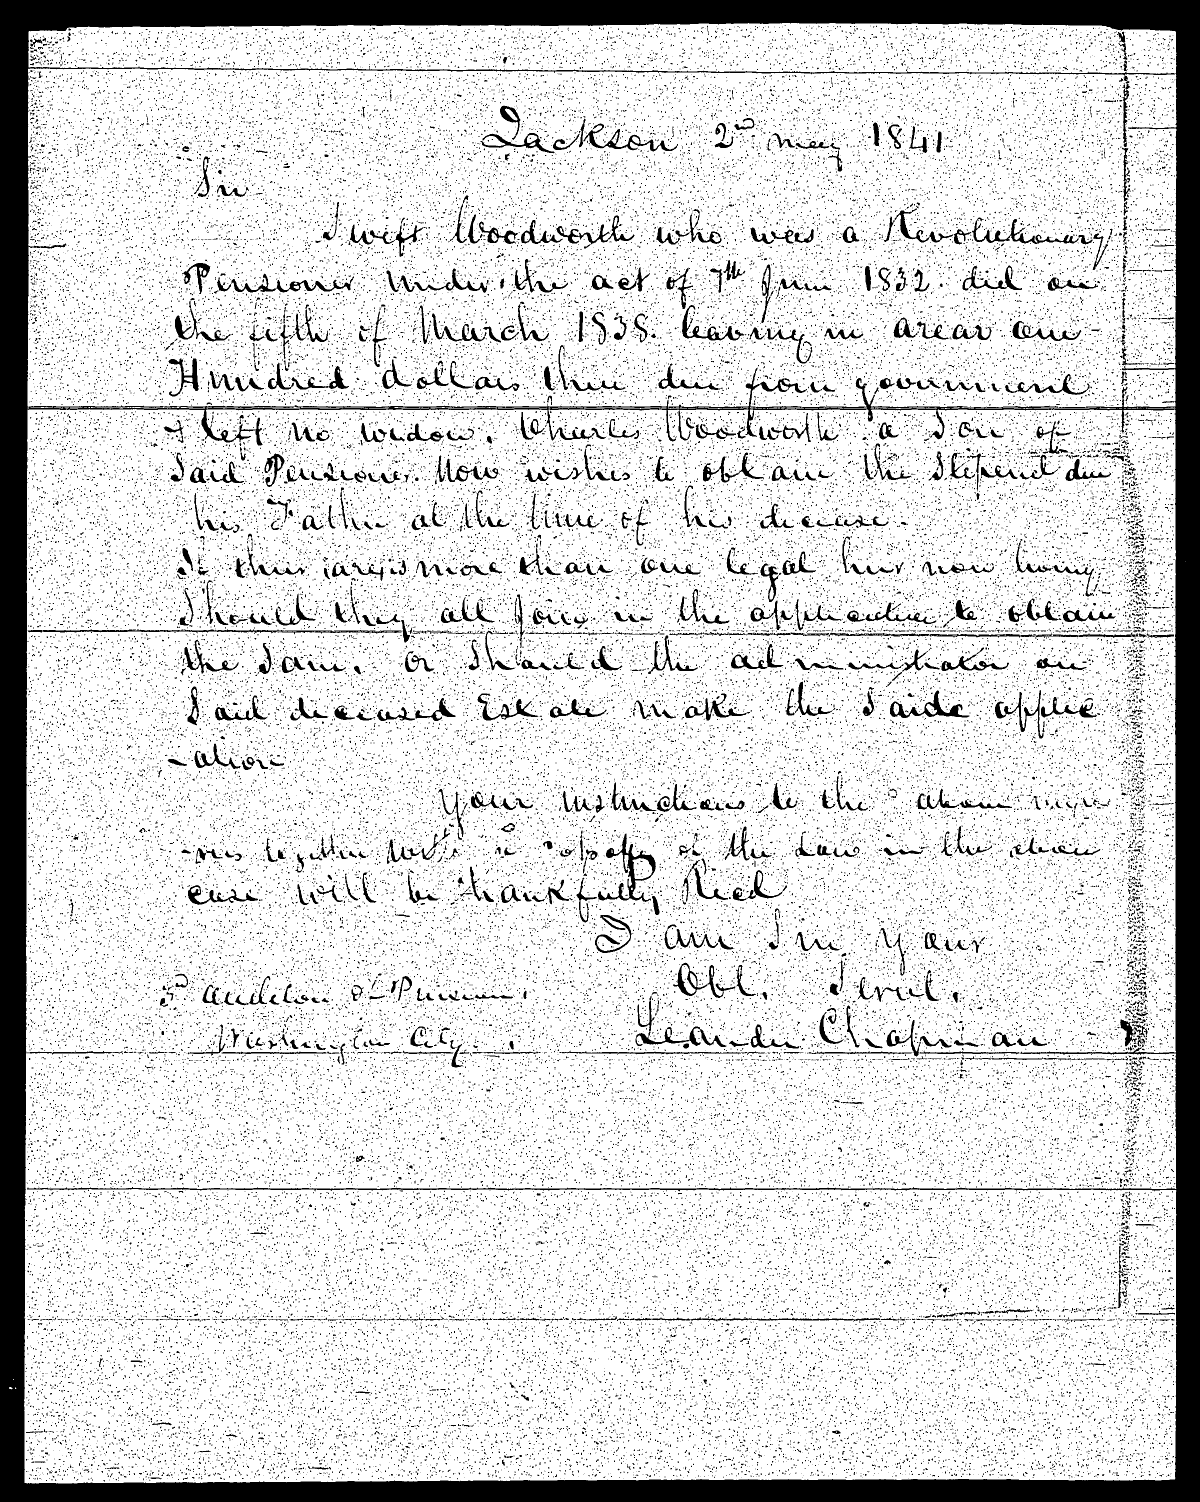 Jackson 2nd may 1841
Sir
Swift Woodworth who was a Revolutionary
Pensioner under the act of 7th June 1832. did on
the fifth of March 1838. leaving in arear one
Hundred dollars then due from government
& left no widow. Charles Woodworth a Son of
Said Pensioner. Now wishes to obtain the Stipend due
his Father at the time of his decease.
If there is more than one legal heir now living
Should they all Join in the application to obtain
the Same. Or Should the administrator on
Said deceased Estate make the Said applic
-ation
Your instructions to the above
together with a of the Law in the above
case will be thankfully Recd
I am Sir your
Obt. Servt.
3d auditor of Pension.
Washington City.
Leander Chapman